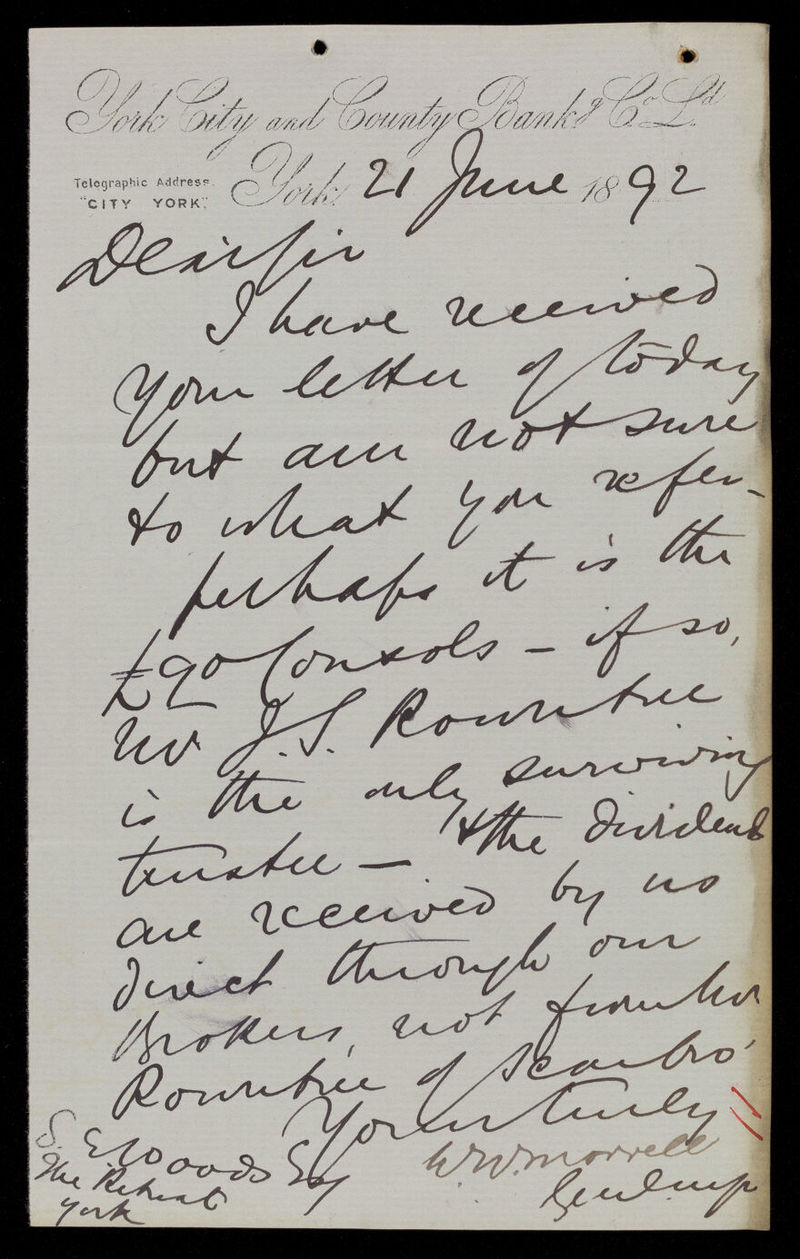 York City and County Bankg Co Ld
Telegraphic Address.
"CITY YORK".
York, 21 June 1892
Dear Sir
I have received
your letter of today
but am not sure
to what you refer -
perhaps it is the
£90 Consols - if so,
Mr J.S. Rowntree
is the only surviving
trustee - & the dividends
are received by us
direct through our
Brokers, not from Mr
Rowntree of Scarbro'
Yours truly
W.W. Morrell
S. E. Woods Esq
The Retreat
York